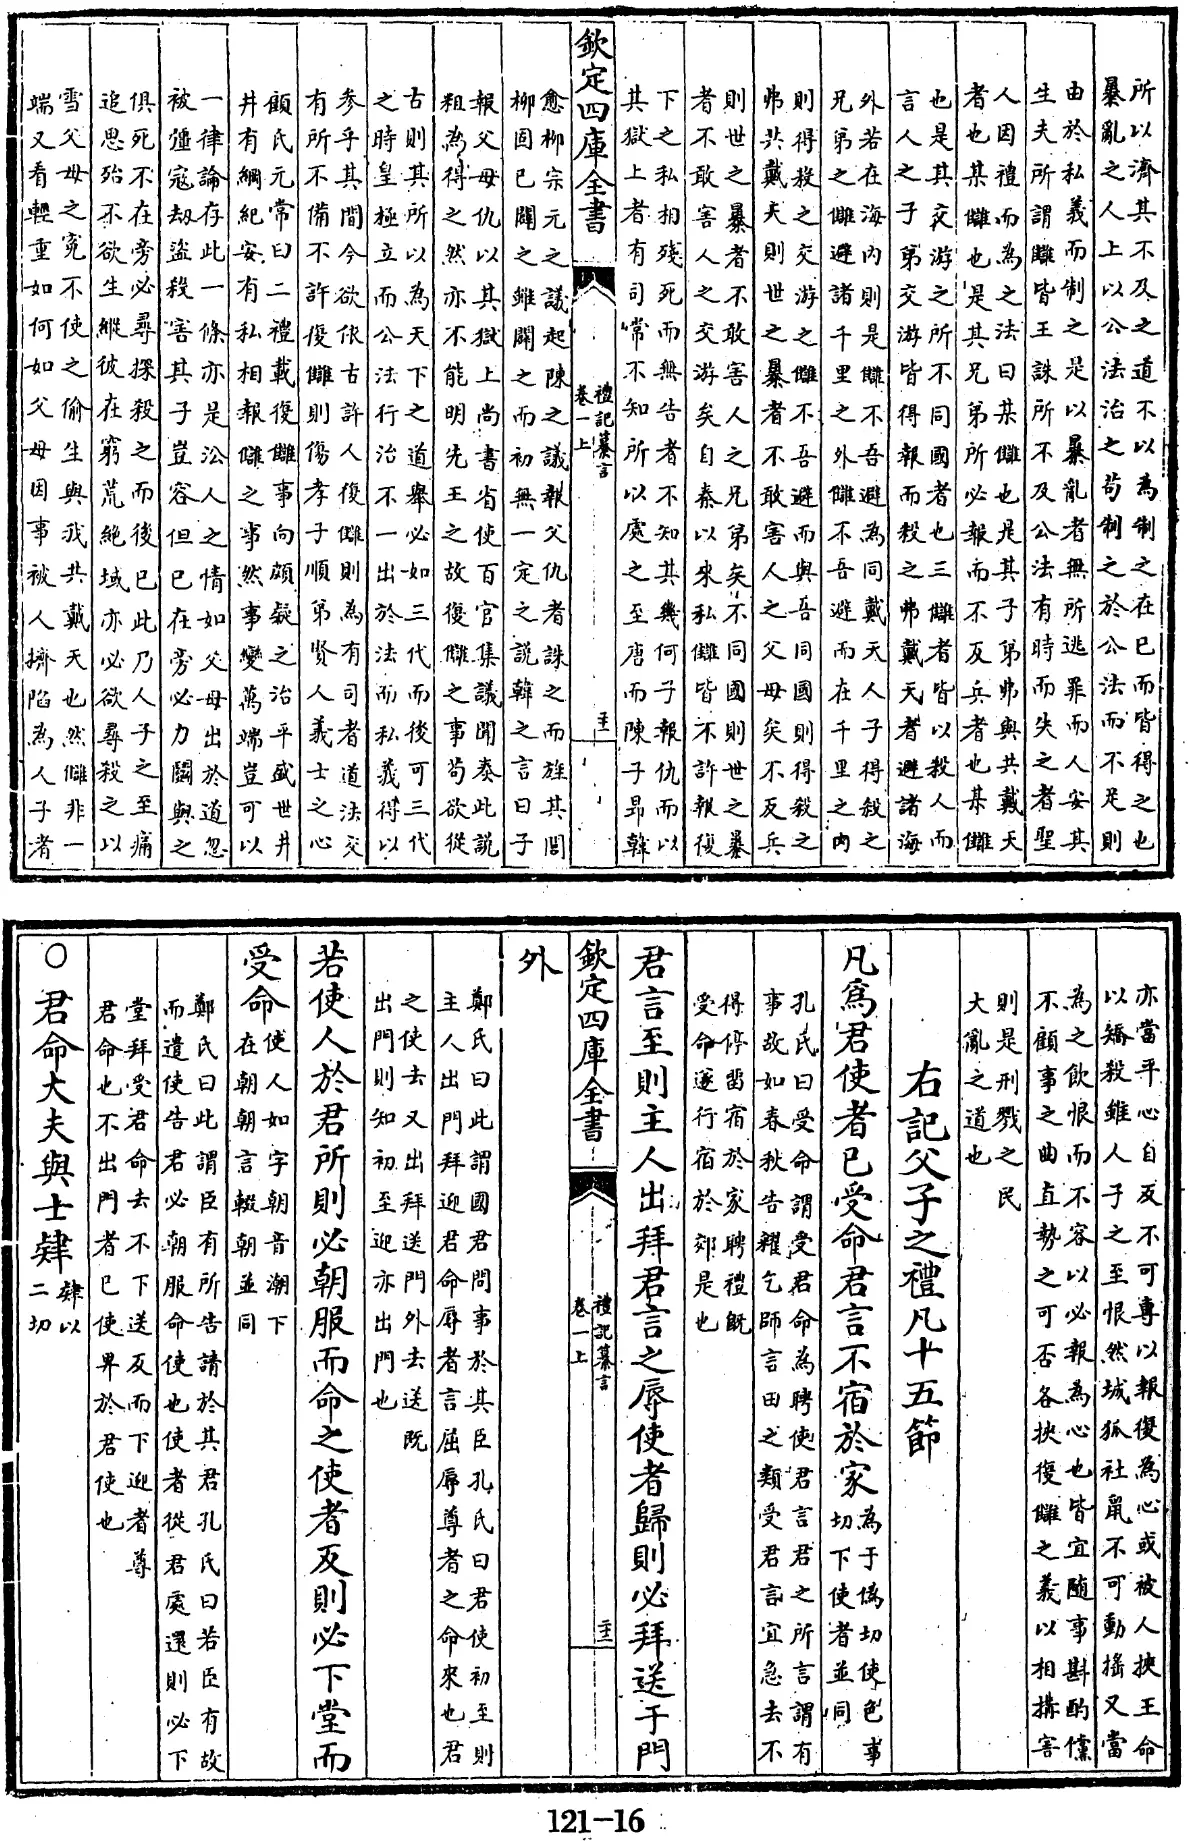 所以濟其不及之道不以為制之在已而皆得之也
暴亂之人上以公法治之苟制之於公法而不足則
由於私義而制之是以暴亂者無所逃罪而人安其
生夫所謂讎皆王誅所不及公法有時而失之者聖
人因禮而為之法曰某讎也是其子弟弗與共戴天
者也某讎也是其兄弟所必報而不反兵者也某讎
也是其交游之所不同國者也三讎者皆以殺人而
言人之子弟交游皆得報而殺之弗戴天者避諸海
外若在海内則是讎不吾避為同戴天人子得殺之
兄弟之讎避諸千里之外讎不吾避而在千里之内
則得殺之交游之讎不吾避而與吾同國則得殺之
弗共戴天則世之暴者不敢害人之父母矣不反兵
則世之暴者不敢害人之兄弟矣不同國則世之暴
者不敢害人之交游矣自秦以來私讎皆不許報復
下之私相殘死而無告者不知其幾何子報仇而以
其獄上者有司常不知所以處之至唐而陳子昻韓
欽定四庫全書
禮記纂言
卷一上
二十一
愈柳宗元之議起陳之議報父仇者誅之而旌其閭
柳固已闢之雖闢之而初無一定之說韓之言曰子
報父母仇以其獄上尚書省使百官集議聞奏此說
粗為得之然亦不能明先王之故復讎之事苟欲從
古則其所以為天下之道舉必如三代而後可三代
之時皇極立而公法行治不一出於法而私義得以
參乎其間今欲依古許人復讎則為有司者道法交
有所不備不許復讎則傷孝子順第賢人義士之心
顧氏元常曰二禮載復讎事向頗疑之治平盛世井
井有綱紀安有私相報讎之事然事變萬端豈可以
一律論存此一條亦是沿人之情如父母出於道忽
被彊寇劫盜殺害其子豈容但已在旁必力鬭與之
俱死不在旁必尋探殺之而後已此乃人子之至痛
追思殆不欲生縱彼在窮荒絶域亦必欲尋殺之以
雪父母之寃不使之偷生與我共戴天也然讎非一
端又看輕重如何如父母因事被人擠陷為人子者
亦當平心自反不可專以報復為心或被人挾王命
以矯殺雖人子之至恨然城狐社鼠不可動搖又當
為之飲恨而不容以必報為心也皆宜隨事斟酌儻
不顧事之曲直勢之可否各挾復讎之義以相搆害
則是刑戮之民
大亂之道也
右記父子之禮凡十五節
凡為君使者已受命君言不宿於家
為于偽切使色事
切下使者並同
孔氏曰受命謂受君命為聘使君言君之所言謂有
事故如春秋告糴乞師言田之類受君言宜急去不
得停留宿於家聘禮既
受命遂行宿於郊是也
君言至則主人出拜君言之辱使者歸則必拜送于門
欽定四庫全書
禮記纂言
卷一上
二十二
外
鄭氏曰此謂國君問事於其臣孔氏曰君使初至則
主人出門拜迎君命辱者言屈辱尊者之命來也君
之使去又出拜送門外去送既
出門則知初至迎亦出門也
若使人於君所則必朝服而命之使者反則必下堂而
受命
使人如字朝音潮下
在朝朝言輟朝並同
鄭氏曰此謂臣有所告請於其君孔氏曰若臣有故
而遣使告君必朝服命使也使者從君處還則必下
堂拜受君命去不下送反而下迎者尊
君命也不出門者已使畀於君使也
○君命大夫與士肄
肄以
二切
121-16